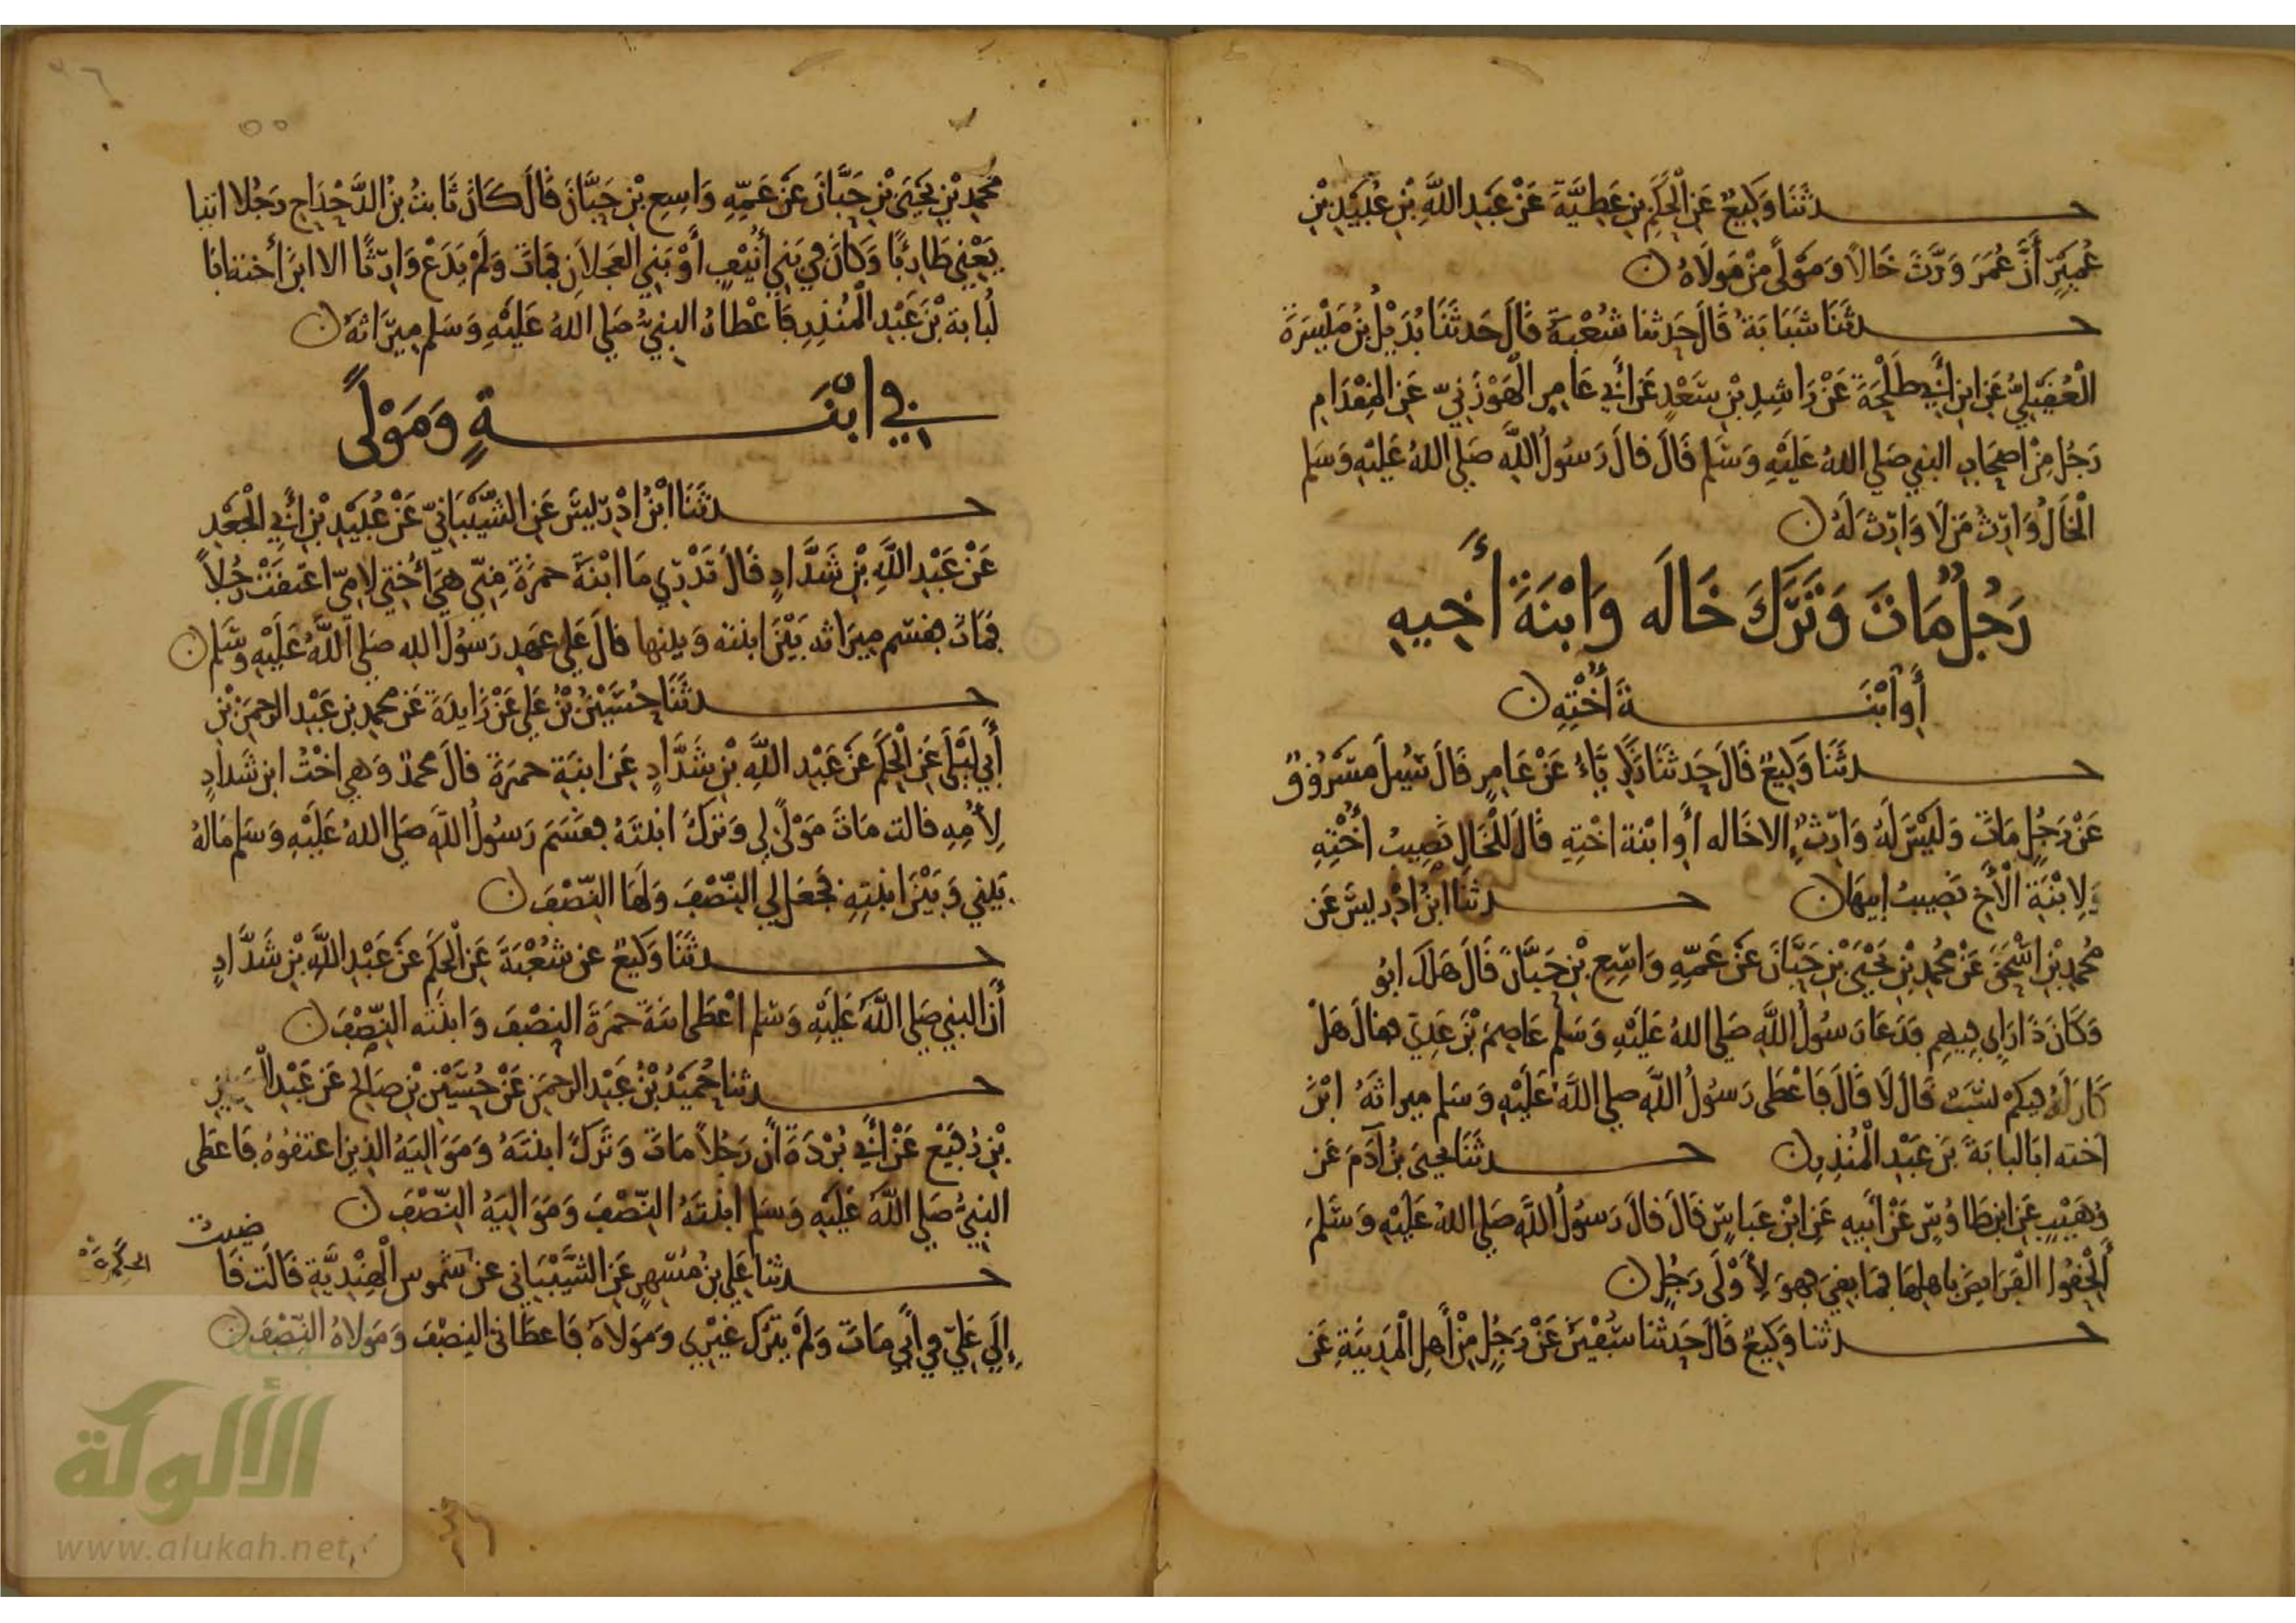 حدثنا وَكِيعٌ عَنِ الْحَكَمِ بنِ عَطِيَّةَ عَنْ عَبدِ اللَّهِ بْنِ عُبَيْدِ بْنِ
عُمَيْرٍ أَنَّ عُمَرَ وَرَّثَ خَالًا وَمَوْلًى مِنْ مَوْلَاهُ ن
حدثنا شَبَابَة قَالَ حَدثنا شُعْبَةُ قَالَ حَدثَنَا بُدَيْلُ بْنُ مَيْسَرَةَ
الْعُقَيْلِيُّ عَنِ ابنِ أَبِي طَلْحَةَ عَنْ رَاشِدِ بْنِ سَعْدٍ عَنْ أَبِي عَامِرِ الْهَوْزَنِيِّ عَنِ المِقْدَامِ
رَجُل مِنْ اصحَابِ النبي صَلي اللهُ عَلَيْهِ وَسَلم قَالَ قالَ رَسُولُ اللَّهِ صَلي اللهُ عَلَيْهِ وَسَلم
الْخَالُ وَارِثُ مَنْ لَا وَارِثَ لَهُ ن
رَجُلٌ مَاتَ وَتَرَكَ خَالَه وَابْنَةَ أَخِيهِ
أَوِ ابْنَةَ أُخْتِهِ ن
حدثنا وَكِيعٌ قَالَ حَدثَنَا زَكَرِيَّاءُ عَنْ عَامِرٍ قَالَ سُئِلَ مَسْرُوقٌ
عَنْ رَجُلٍ مَاتَ وَلَيْسَ لَهُ وَارِثٌ الا خَاله أَو ابْنة اخْتِهِ قَالَ لِلْخَالِ نَصِيبُ أُخْتِهِ
وَلِابْنَةِ الْأَخِ نَصِيبُ أبِيهَا ن حدثنا ابْنُ ادْرِيسَ عَن
مُحمدِ بْنِ اسْحَقَ عَنْ مُحمدِ بْنِ يَحْيَى بْنِ حَبَّانَ عَنْ عَمِّهِ وَاسِعِ بْنِ حَبَّانَ قَالَ هَلَكَ ابْنُ
وَكَانَ ذَا رَأيٍ فِيهِم فَدَعَا رَسُولُ اللَّهِ صَلي اللهُ عَلَيْهِ وَسَلم عَاصِمَ بْنَ عَدِيّ فقالَ هَلْ
كَانَ لَهُ فيكُمْ نسَبٌ قَالَ لَا قَالَ فَاعْطَى رَسُولُ اللَّهِ صلي اللَّهُ عَلَيْهِ وَسَلم ميراثَهُ ابْنَ
اخته ابَا لبَابَةَ بن عَبْدِ الْمُنْذِرِ ن حدثنا يحيى بنُ آدَمَ عَن
وُهَيْبٍ عَنِ ابنِ طَاوُسٍ عَنْ أَبِيهِ عَنِ ابْنِ عَبَاسٍ قَالَ قَالَ رَسُولُ اللَّهِ صَلي اللهُ عَلَيْهِ وَسَلمَ
أَلْحِقُوا الْفَرَايِضَ بِاهلِهَا فمَا بقِيَ فهوَ لِأَوْلَى رَجُلٍ ن
حدثنا وَكِيعٌ قَالَ حَدثَنا سُفْيَن عَنْ رَجُلٍ مِنْ أَهلِ الْمَدِينَةِ عَن
مُحمدِ بْنِ يَحْيَى بْنِ حَبَّانَ عَنْ عَمِّهِ وَاسِعِ بْنِ حَبَّانَ قَالَ كَانَ ثَابِتُ بنُ الدَّحْدَاحِ رَجُلا اتيا
يَعْنِي طَارِئًا وَكَانَ في بَنِي أُنَيْفٍ أَوْ بَنِي العَجلَانِ فمَاتَ وَلَمْ يَدَعْ وَارِثًا الا ابنَ أختِه ابَا
لُبَابةَ بْنَ عَبْدِ الْمُنْذِرِ فَاعْطَاهُ النبيُّ صَلي اللهُ عَلَيْهِ وَسَلم مِيرَاثَهُ ن
في ابْنَةٍ وَمَوْلًى
حدثنا ابْنُ ادْرِيسَ عَنِ الشَّيْبَانِيّ عَنْ عُبَيْدِ بْنِ أَبِي الْجَعْدِ
عَنْ عَبْدِ اللَّهِ بْنِ شَدَّادٍ قَالَ تَدْرِي مَا ابْنَةُ حمزَةَ مِنِّي هيَ أُخْتِي لِامِّي اعتقَتْ رَجُلاً
فمَاتَ فقسم مِيرَاثه بَيْنَ ابنته وَبينها قالَ عَلي عهدِ رَسُولِ اللهِ صَلي اللَّهُ عَلَيْهِ وسَلم ن
حدثنا حُسَيْنُ بْنُ عَلي عَنْ زَايِدَةَ عَنْ محمدِ بنِ عَبْدِ الرحمَنِ بْنِ
أَبِي لَيْلَى عَنِ الْحَكَمِ عَنْ عَبْدِ اللَّهِ بْنِ شَدَّادٍ عَنِ ابنَةِ حمزَةَ قالَ محمدٌ وَهي اخْتُ ابنِ شَدادٍ
لِأُمِّهِ قالت مَاتَ مَوْلًى لِي وَتَرَكَ ابنَتَهُ فقَسَمَ رَسُولُ اللَّهِ صَلي اللهُ عَلَيْهِ وَسَلم مَالَهُ
بَيْنِي وَبَيْنَ ابنَتِهِ فجَعَلَ لِي النِّصْفَ وَلَهَا النِّصْفَ ن
حدثنا وَكِيعٌ عن شُعْبَةَ عَنِ الْحَكَمِ عَنْ عَبْدِ اللَّهِ بْنِ شَدَّادٍ
أَنَّ النبي صَلي اللَّهُ عَلَيْهِ وَسَلم اعْطَى ابنَةَ حمزَةَ النِصْفَ وَابنَتَه النِّصْفَ ن
حدثنا حُمَيْدُ بْنُ عَبْدِ الرحمَنِ عَنْ حُسَيْنِ بْنِ صَالحٍ عَن عَبْدِ
بْنِ رُفَيْعٍ عَنْ أَبِي بُرْدَةَ أَنَّ رَجُلاً مَاتَ وَتَرَكَ ابنَتَهُ وَمَوَالِيَهُ الذينَ اعتقُوهُ فَاعطَى
النبيُّ صَلي اللَّهُ عَلَيْهِ وَسَلم ابنَتَهُ النِّصْفَ وَمَوَاليَهُ النِّصْفَ ن
حدثنا عَلي بنُ مُسْهِرٍ عَنِ الشَّيْبَانِي عن شَمُوسِ الْهِنْدِيَّةِ قَالَت قَا
ضيتُ
إِلَى عَلِيّ في أَبِي مَاتَ وَلَمْ يَتْرُك غَيْرِي وَمَوْلَاهُ فَاعطَانِي النِصْفَ وَمَوْلَاهُ النِّصْفَ ن
شبكة
الألوكة
www.alukah.net